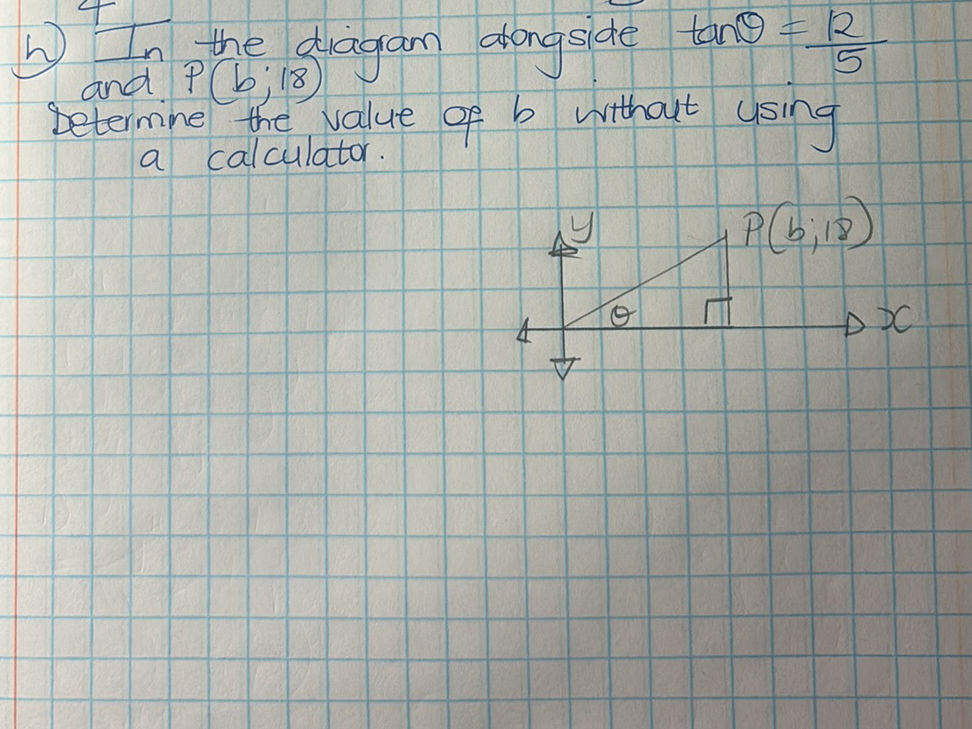 4
h) In the diagram alongside tanθ = 12/5
and P(b;18)
Determine the value of b without using
a calculator.
y
P(b;18)
θ
x